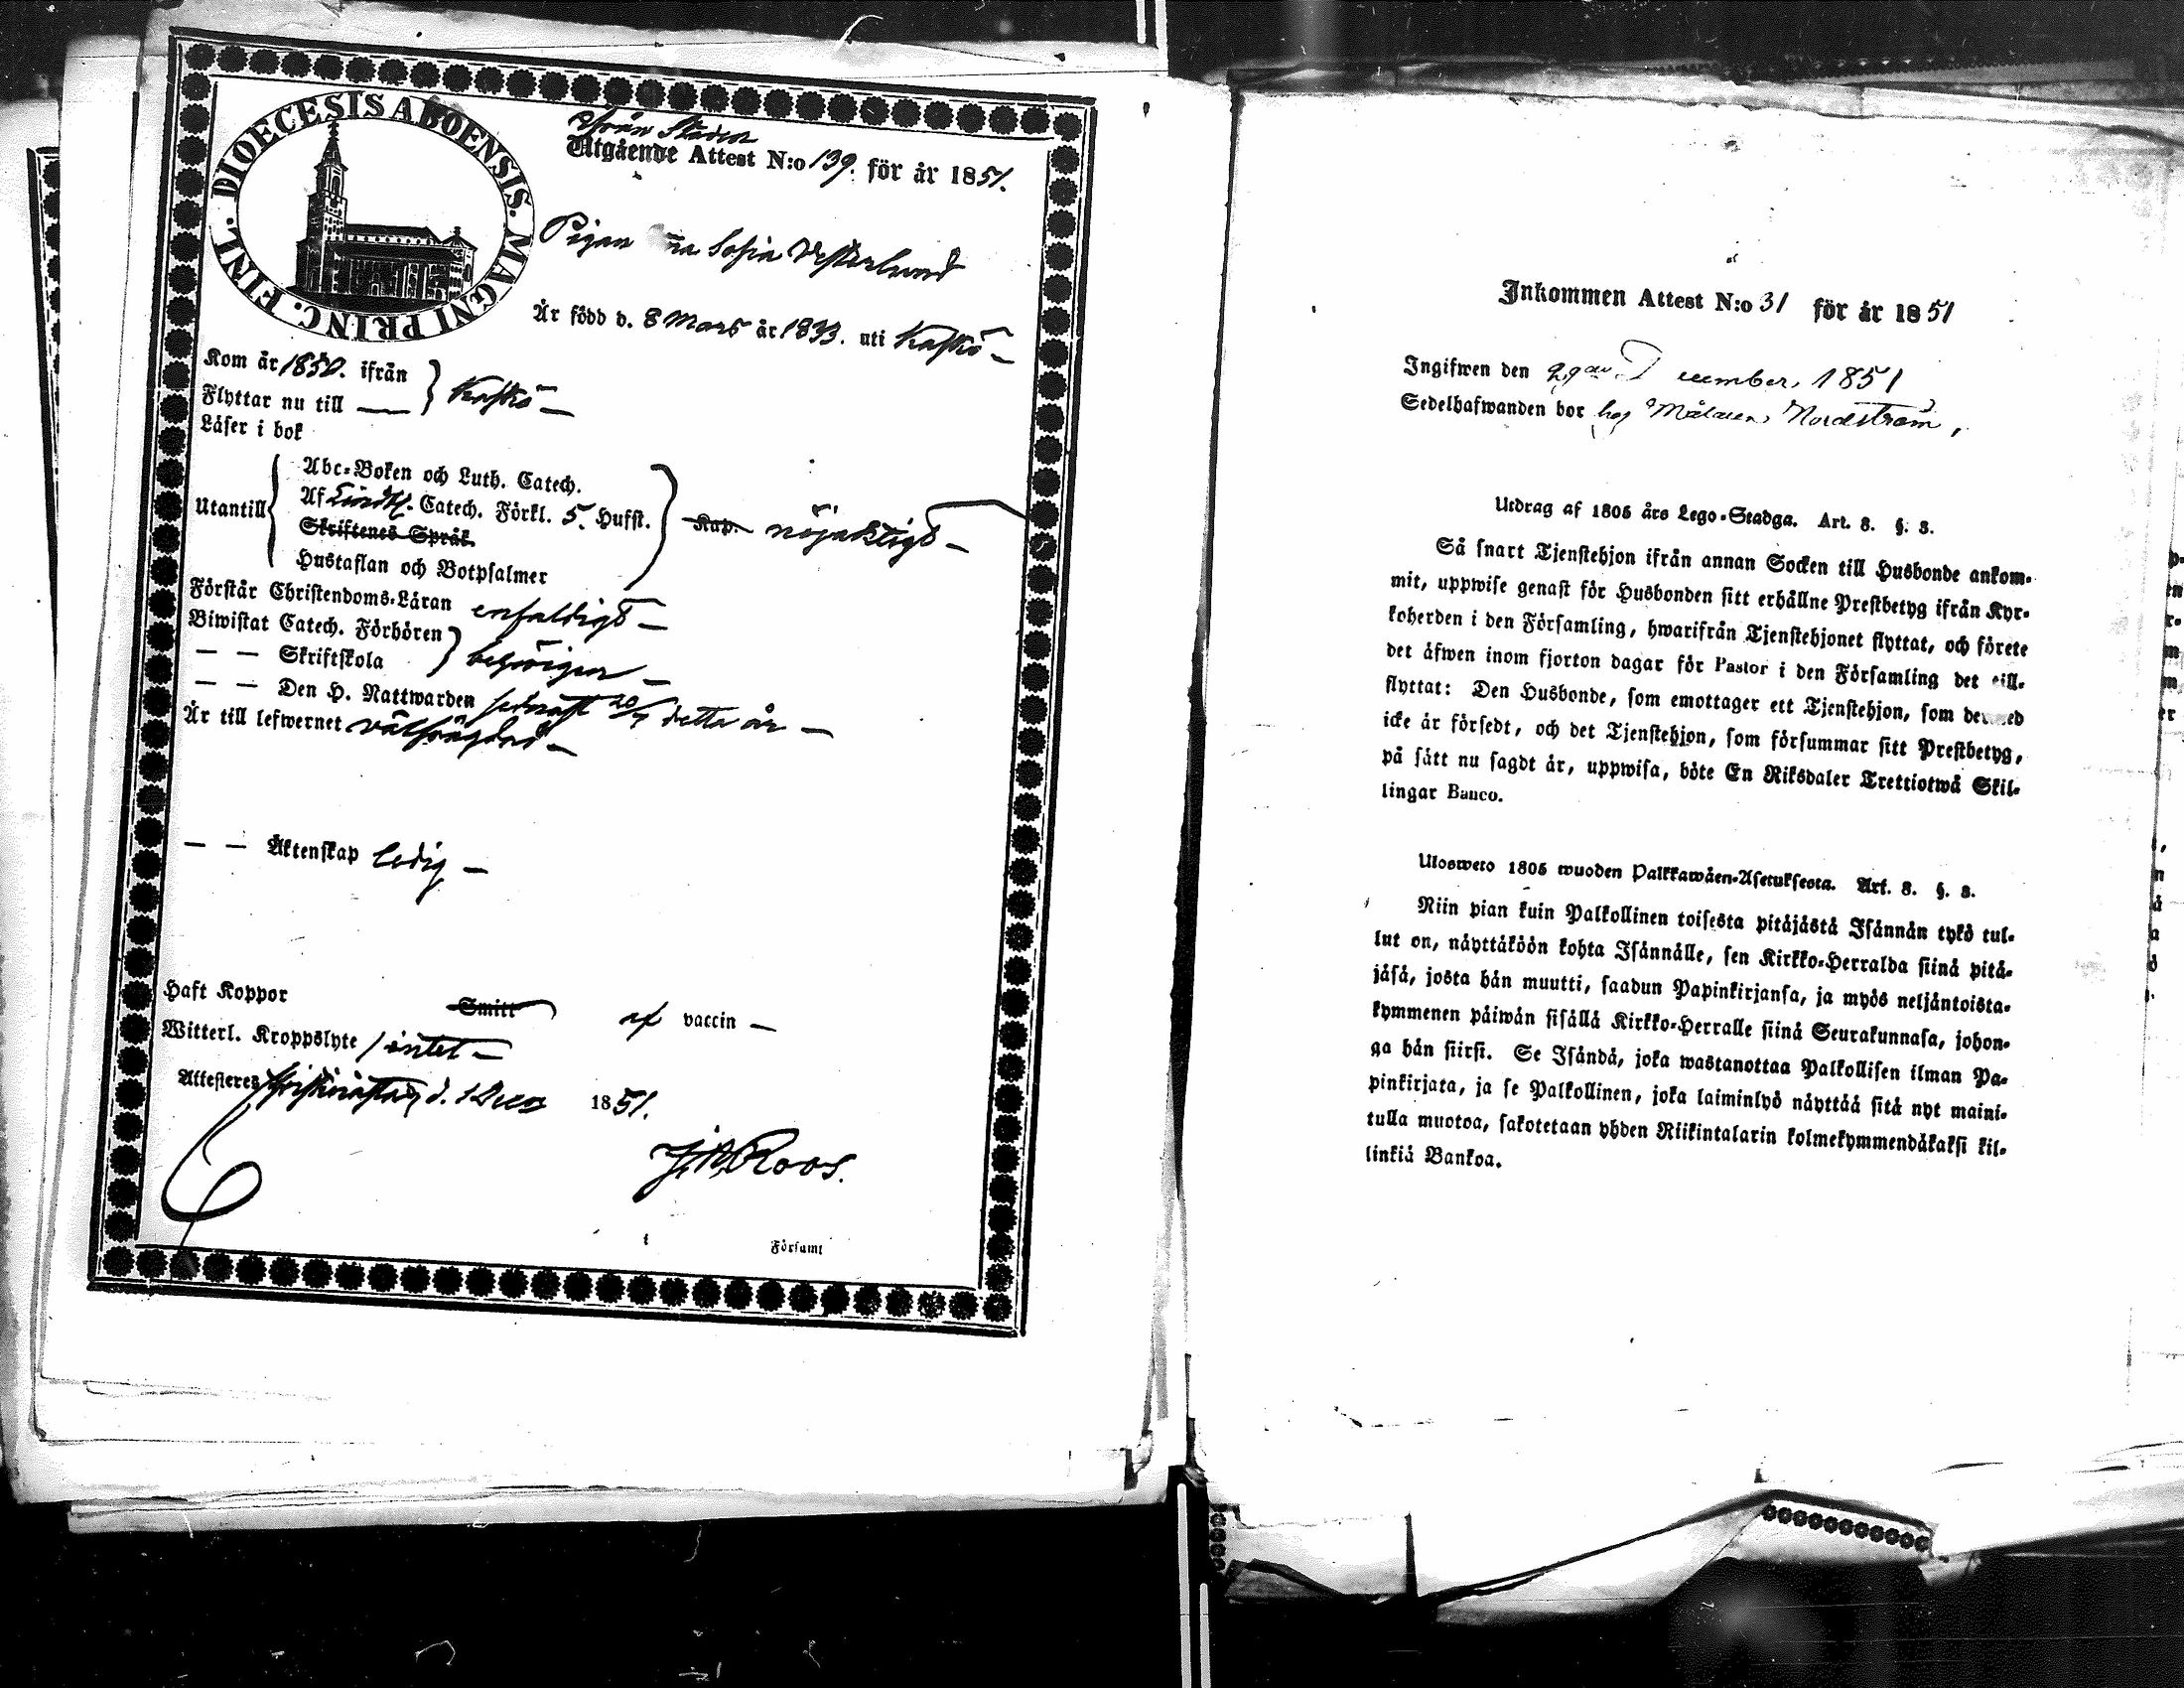 DIOECESIS ABOENSIS. MAGNI PRINC. FINL.
Från Staden
Utgående Attest N:o 139. för år 1851.
Pigan na Sofia Vesterlund
Är född d. 8 Mars år 1833. uti Kaskö —
Kom år 1850. ifrån
Flyttar nu till — Kaskö —
Läser i bok
Utantill
Abc-Boken och Luth. Catech.
Af Lindbl. Catech. Förkl. 5. Hufst.
Skriftenes Språk.
Hustaflan och Botpsalmer
Kap. nöjaktigt —
Förstår Christendoms-Läran enfaldigt —
Biwistat Catech. Förhören
— — Skriftskola behörigen —
— — Den H. Nattwarden sednast 20/7 detta år —
Är till lefwernet välfrägdad —
— — Äktenskap ledig —
Haft Koppor Smitt af vaccin —
Witterl. Kroppslyte intet —
Attesteres Christinestad d. 1 Dec 1851.
Roos.
Församl
Inkommen Attest N:o 31 för år 1851
Ingifwen den 29 December 1851
Sedelhafwanden bor hos Målaren Nordström,
Utdrag af 1805 års Lego-Stadga. Art. 8. §. 8.
Så snart Tjenstehjon ifrån annan Socken till Husbonde ankom-
mit, uppwise genast för Husbonden sitt erhållne Prestbetyg ifrån Kyr-
koherden i den Församling, hwarifrån Tjenstehjonet flyttat, och förete
det äfwen inom fjorton dagar för Pastor i den Församling det till-
flyttat: Den Husbonde, som emottager ett Tjenstehjon, som dermed
icke är försedt, och det Tjenstehjon, som försummar sitt Prestbetyg,
på sätt nu sagdt är, uppwisa, böte En Riksdaler Trettiotwå Skil-
lingar Banco.
Ulosweto 1805 wuoden Palkkawäen-Asetuksesta. Art. 8. §. 8.
Niin pian kuin Palkollinen toisesta pitäjästä Isännän tykö tul-
lut on, näyttäköön kohta Isännälle, sen Kirkko-Herralda siinä pitä-
jäsä, josta hän muutti, saadun Papinkirjansa, ja myös neljäntoista-
kymmenen päiwän sisällä Kirkko-Herralle siinä Seurakunnasa, johon-
ga hän siirsi. Se Isändä, joka wastanottaa Palkollisen ilman Pa-
pinkirjata, ja se Palkollinen, joka laiminlyö näyttää sitä nyt maini-
tulla muotoa, sakotetaan yhden Riikintalarin kolmekymmendäkaksi kil-
linkiä Bankoa.